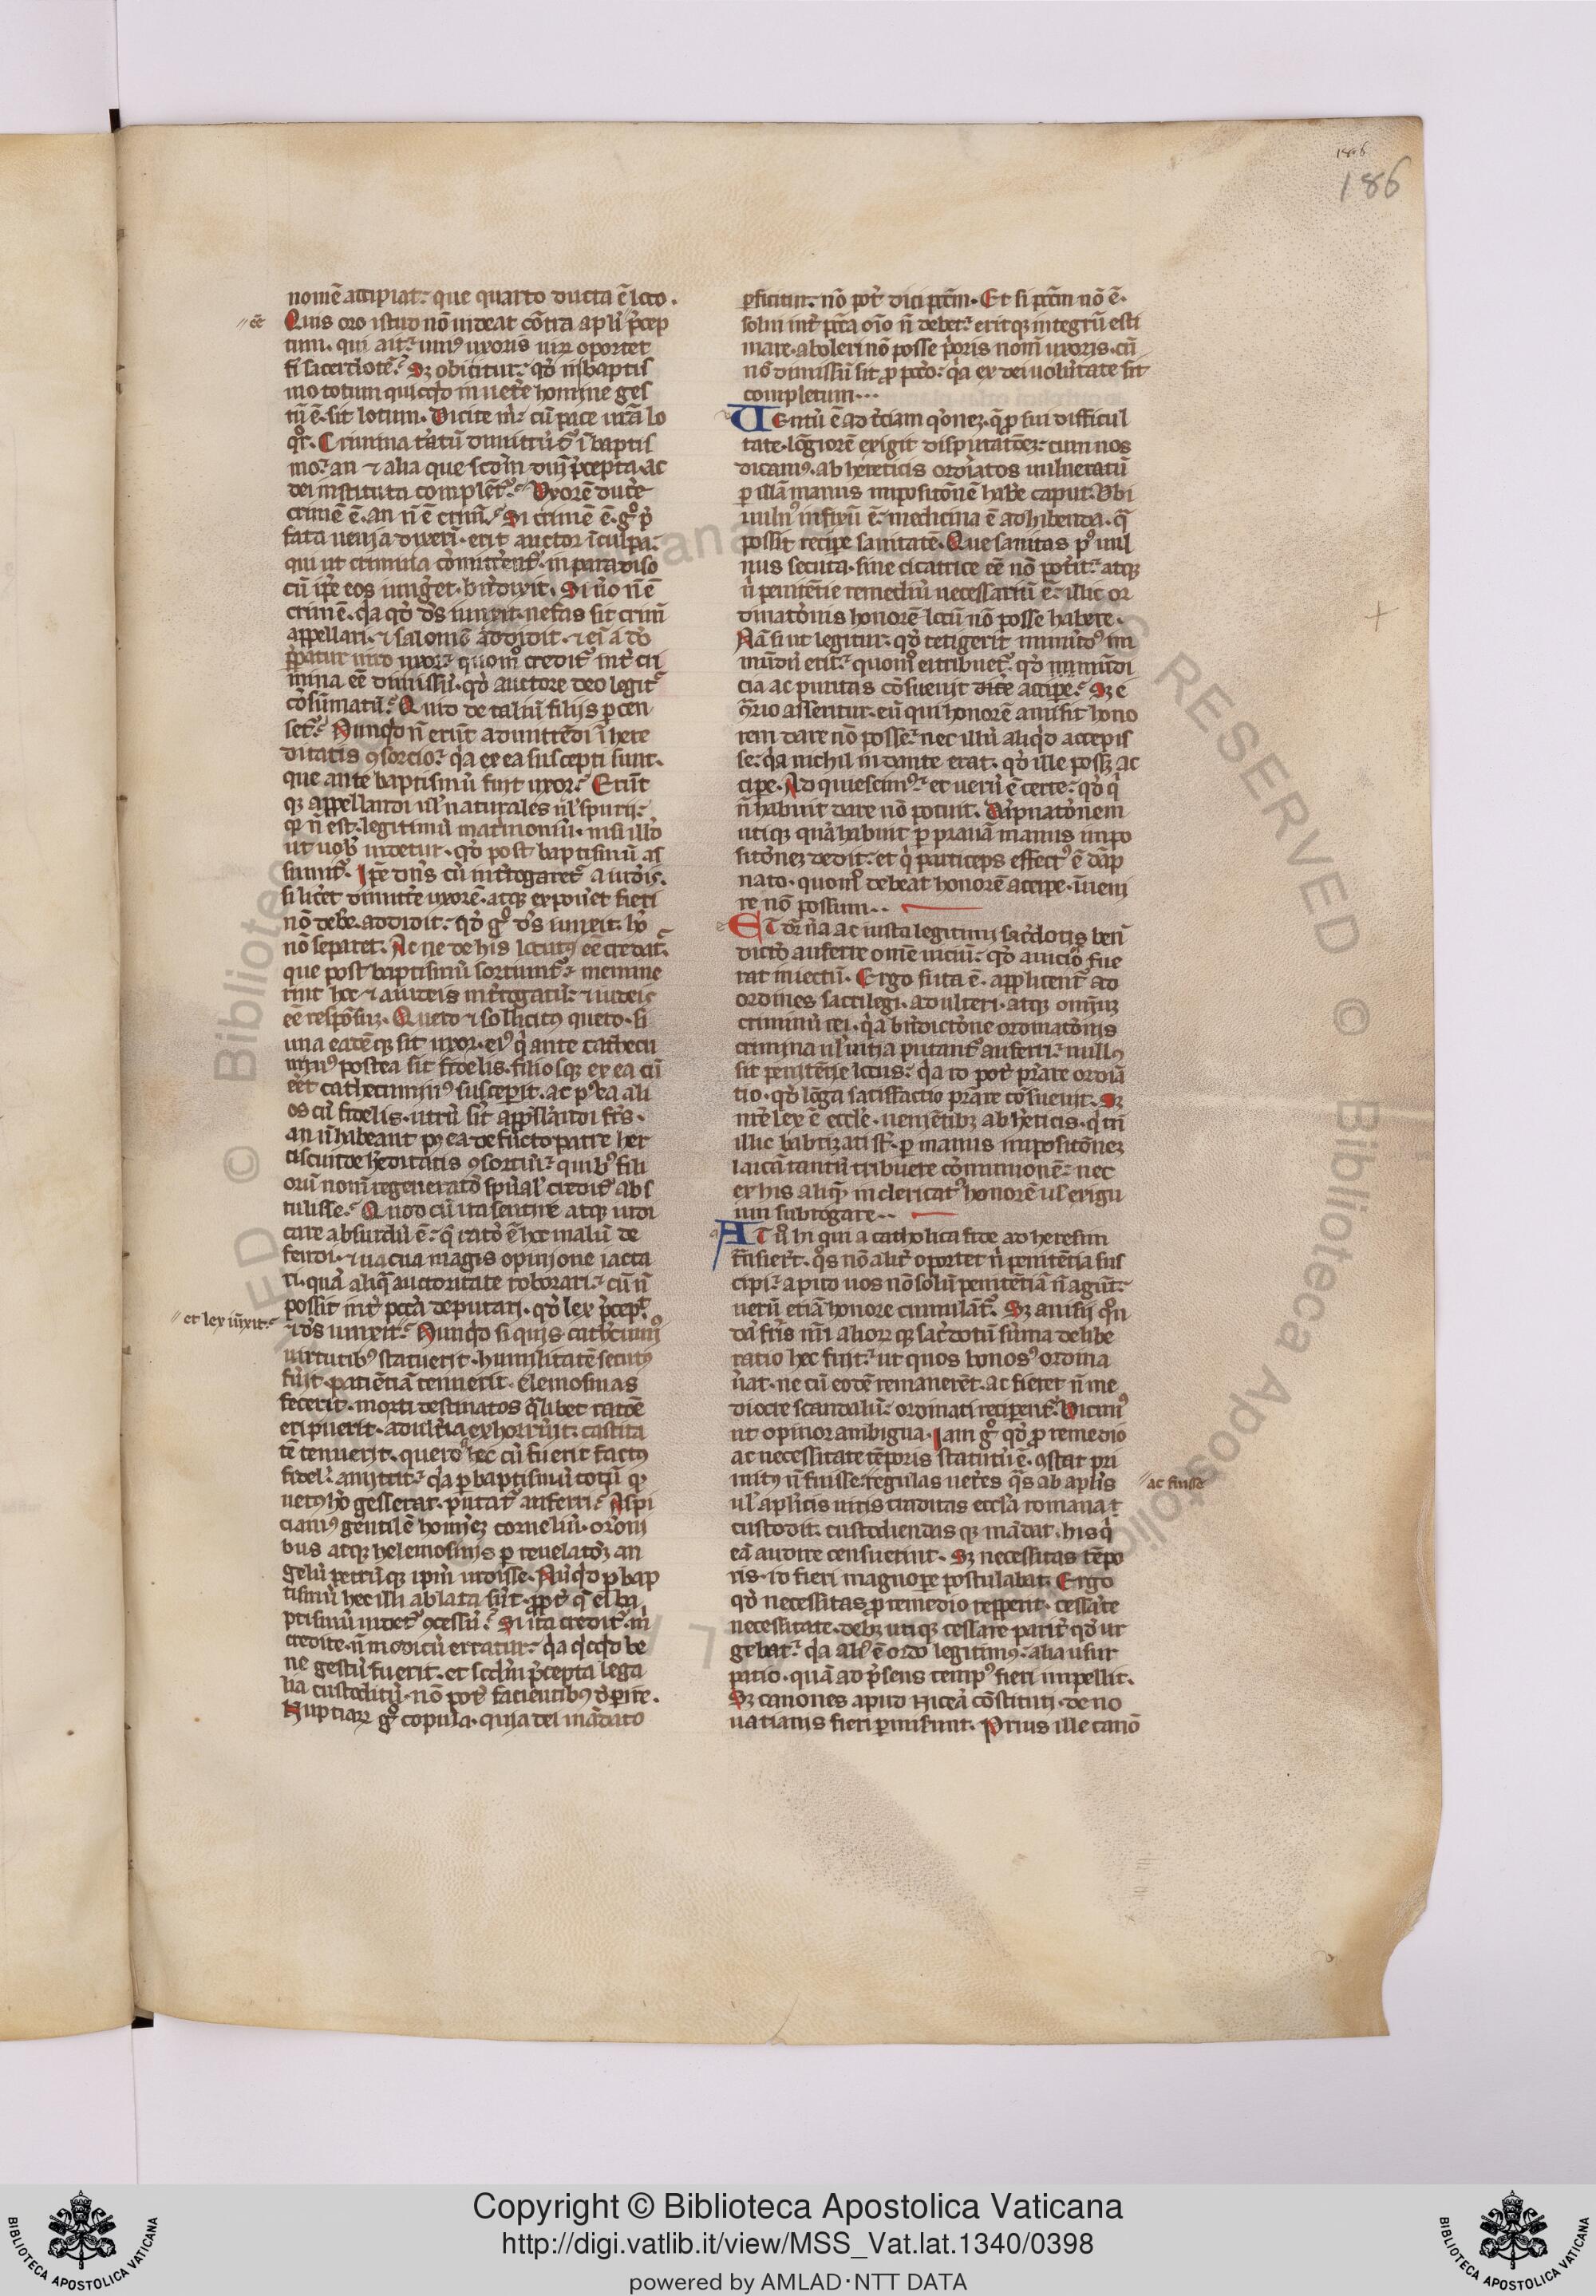 186
186
nomē accipiat: que quarto ducta ē lcto.
Quis oro istud nō uideat cōtra apl'i p̄cep
tum. qui ait: uniꝰ uxoris uirū oportet
fi sacerdotē. Sꝫ obicitur: qd' in baptis
mo totum quicqd' in uetere homine ges
tū ē. sit lotum. Dicite m': cū pace ur̄a lo
qr̄. Crimina tātū dimittūt̄ ī baptis
mo: an ⁊ alia que scd'm dn̄i p̄cepta. ac
dei instituta complēt̄. Uxorē ducˀe
crimē ē. an n̄ ē crim̄. Si crimē ē. gͦ p̄
fata uenia dixeri. erit auctor ī culpa:
qui ut crimina cōmittˀent̄. in paradiso
cū ip̄e eos iungˀet. bn̄dixit. Si u'o n̄ ē
crimē. qa qd' ds̄ iunxit. nefas sit crim̄
appellari. ⁊ salomē addidit. ⁊ ei' a do
p̄patur uiro uxor: quom' credit̄ int' cri
mina eē dimissū. qd' auctore deo legit̄
cōsūmatū. Quid de taliū filijs percen
set̄. Nunqd' n̄ erūt admittēdi ī here
ditatis ꝯsorcio: qa ex ea suscepti sunt.
que ante baptismū fuit uxor. Erūt
qꝫ appellandi ul' naturales ul' spurij:
qꝛ n̄ est. legitimū matˀmoniū. nisi illd'
ut uob' uidetur. qd' post baptismū as
sumit̄. Ipē dn̄s cū intˀrogaret̄ a iudeis.
si licˀet dimittˀe uxorē. atqꝫ exponˀet fieri
nō debˀe. addidit: qd' gͦ ds̄ iunxit. hō
nō separet. Ac ne de his locutꝰ eē credat̄.
que post baptismū sortiunt̄: memine
rint hec ⁊ a iudeis intˀrogatū: ⁊ iudeis
eē respōsuꝫ. Quero ⁊ sollicitus quero. si
una eadēqꝫ sit uxor. eiꝰ q' ante cathecu
minꝰ postea sit fidelis. filiosqꝫ ex ea cū
eēt cathecuminꝰ suscepˀit. ac pꝰ ea ali
os cū fidelis. utrū sīt appˀllandi frˀs.
an n̄ habeant pꝰea defūcto patre her
ciscunde hˀeditatis ꝯsortiū: quibꝰ fili
orū nom̄ regeneratō spūal' credit̄ abs
tulisse. Quod cū ita sentire atqꝫ iudi
care absurdū ē: q̄ ratō ē hoc malū de
fendi. ⁊ uacua magis opinione iacta
ri. quā aliq̄ auctoritate roborari: cū n̄
possit int' pccā deputari. qd' lex p̄cepˀt
⁊ ds̄ iunxit. Nunqd' si quis cathˀcuminꝰ
uirtutibꝰ statuerit. humilitatē secutꝰ
fuit. patiētiā tenuerit. elemosinas
fecerit. morti destinatos q̄libet ratōe
eripuerit. adultˀia exhorruit. castita
tē tenuerit. quero hec cū fuerit factus
fidel'. amittit: qa per baptismū totū qd'
uetus hō gesserat. putat̄ auferri. Aspi
ciamꝰ gentilē homīeꝫ cornelium. oroni
bus atqꝫ helemosinis per reuelatōꝫ an
gelū petrūqꝫ ipm̄ uidisse. Nūqd' per bap
tismū hec illi ablata sūt. ppt' q̄ ei ba
ptismū uidet̄ ꝯcessū. Si ita credit̄. m'
credite. n̄ modicū erratur: qa qcqd' be
ne gestū fuerit. et scd'm p̄cepta lega
lia custoditū. nō pot' facientibꝰ depˀire.
Nuptiaꝝ gͦ copula. quia dei mādato
// eē
// et lex iūxit.
perficitur: nō pot' dici pccm̄. Et si pccm̄ nō ē.
solui int' pccā oīo n̄ debet: eritqꝫ integrū esti
mare. aboleri nō posse prˀoris nom̄ uxoris. cū
nō dimissū sit pro pcco: qa ex dei uolūtate sit
completum...
Uentū ē ad t'ciam qōneꝫ. q̄ pro sui difficul
tate. lōgiorē exigit disputatōeꝫ: cum nos
dicamꝰ. ab hereticis ordiātos uulneratū
per illā manus impositōnē habˀe caput. Ubi
uulnꝰ infixū ē. medicina ē adhibenda. q̄
possit recipˀe sanitatē. Que sanitas pꝰ uul
nus secuta. sine cicatrice eē nō potˀit: atqꝫ
u' penitētie remediū necessariū ē: illic or
dinatōnis honorē lcum nō posse habere.
Nā sicut legitur: qd' tetigerit inmūdꝰ im
mūdū erit: quom' ei tribuet̄. qd' inmūdi
cia ac puritas cōsueuit dicˀe accipe. Sꝫ e
ꝯtrario asseritur: eū qui honorē amisit hono
rem dare nō posse: nec illū aliqd' accepis
se: qa nichil in dante erat. qd' ille possꝫ ac
cipe. Adquiescimꝰ: et uerū ē certe: qd' q'
n̄ habuit dare nō potuit. Dāpnatōnem
utiqꝫ quā habuit per prauā manus inpo
sitōneꝫ dedit: et q' particeps effectꝰ ē dāp
nato. quom' debeat honorē accipe. inueni
re nō possum..
Et dr̄ u'a ac iusta legitimi sacˀdotis ben̄
dictō auferre omē uiciū: qd' a uicioso fue
rat iniectū. Ergo si ita ē. applicent̄ ad
ordines sacrilegi. adulteri. atqꝫ omīuꝫ
criminū rei. qa bn̄dictōne ordinatōnis
crimina ul' uitia putant̄ auferri: nullus
sit penitētie locus: qa id pot' prˀare ordiā
tio. qd' lōga satisfactio prˀare cōsueuit. Sꝫ
nrˀe lex ē ecclˀe. uenientibꝫ ab hˀeticis. q' tn̄
illic babtizati sˀt. per manus impositōneꝫ
laicā tantū tribuere cōmunionē: nec
ex his aliqˀm in clericatꝰ honorē ul' exigu
um subrogare..
At u' hi qui a catholica fide ad heresim
trˀnsierˀt. qˀs nō alit' oportet n' penitētia sus
cipi: apud uos nō solū penitētiā n̄ agūt:
uerū etiā honore cumulāt̄. Sꝫ anisij qōn
dā frˀis nr̄i alioꝝ qꝫ sacˀdotū sūma delibe
ratio hec fuit: ut quos bonosꝰ ordina
uˀat. ne cū eodē remanerēt. ac fieret n̄ me
diocre scandalū: ordinati reciperent̄. Uicimꝰ
ut opinor ambigua. Iam gͦ qd' pro remedio
ac necessitate tēporis statutū ē. ꝯstat pri
mitꝰ n̄ fuisse: regulas uetˀes q̄s ab aplˀis
ul' aplˀicis uiris traditas ecclˀa romana ⁊
custodit. custodiendas qꝫ mādat. his q'
eā audire censuerint. Sꝫ necessitas tēpo
ris. id fieri magnope postulabat. Ergo
qd' necessitas pro remedio repperit. cessāte
necessitate. debꝫ utiqꝫ cessare paritˀ qd' ur
gebat: qa alˀ ē ordo legitimus. alia usur
patio. quā ad p̄sens tempꝰ fieri impellit.
Sꝫ canones apud niceā cōstituti. de no
uatianis fieri permiserunt. Prius ille canō
// ac fuisse
Copyright © Biblioteca Apostolica Vaticana
http://digi.vatlib.it/view/MSS_Vat.lat.1340/0398
powered by AMLAD·NTT DATA
BIBLIOTECA APOSTOLICA VATICANA
BIBLIOTECA APOSTOLICA VATICANA